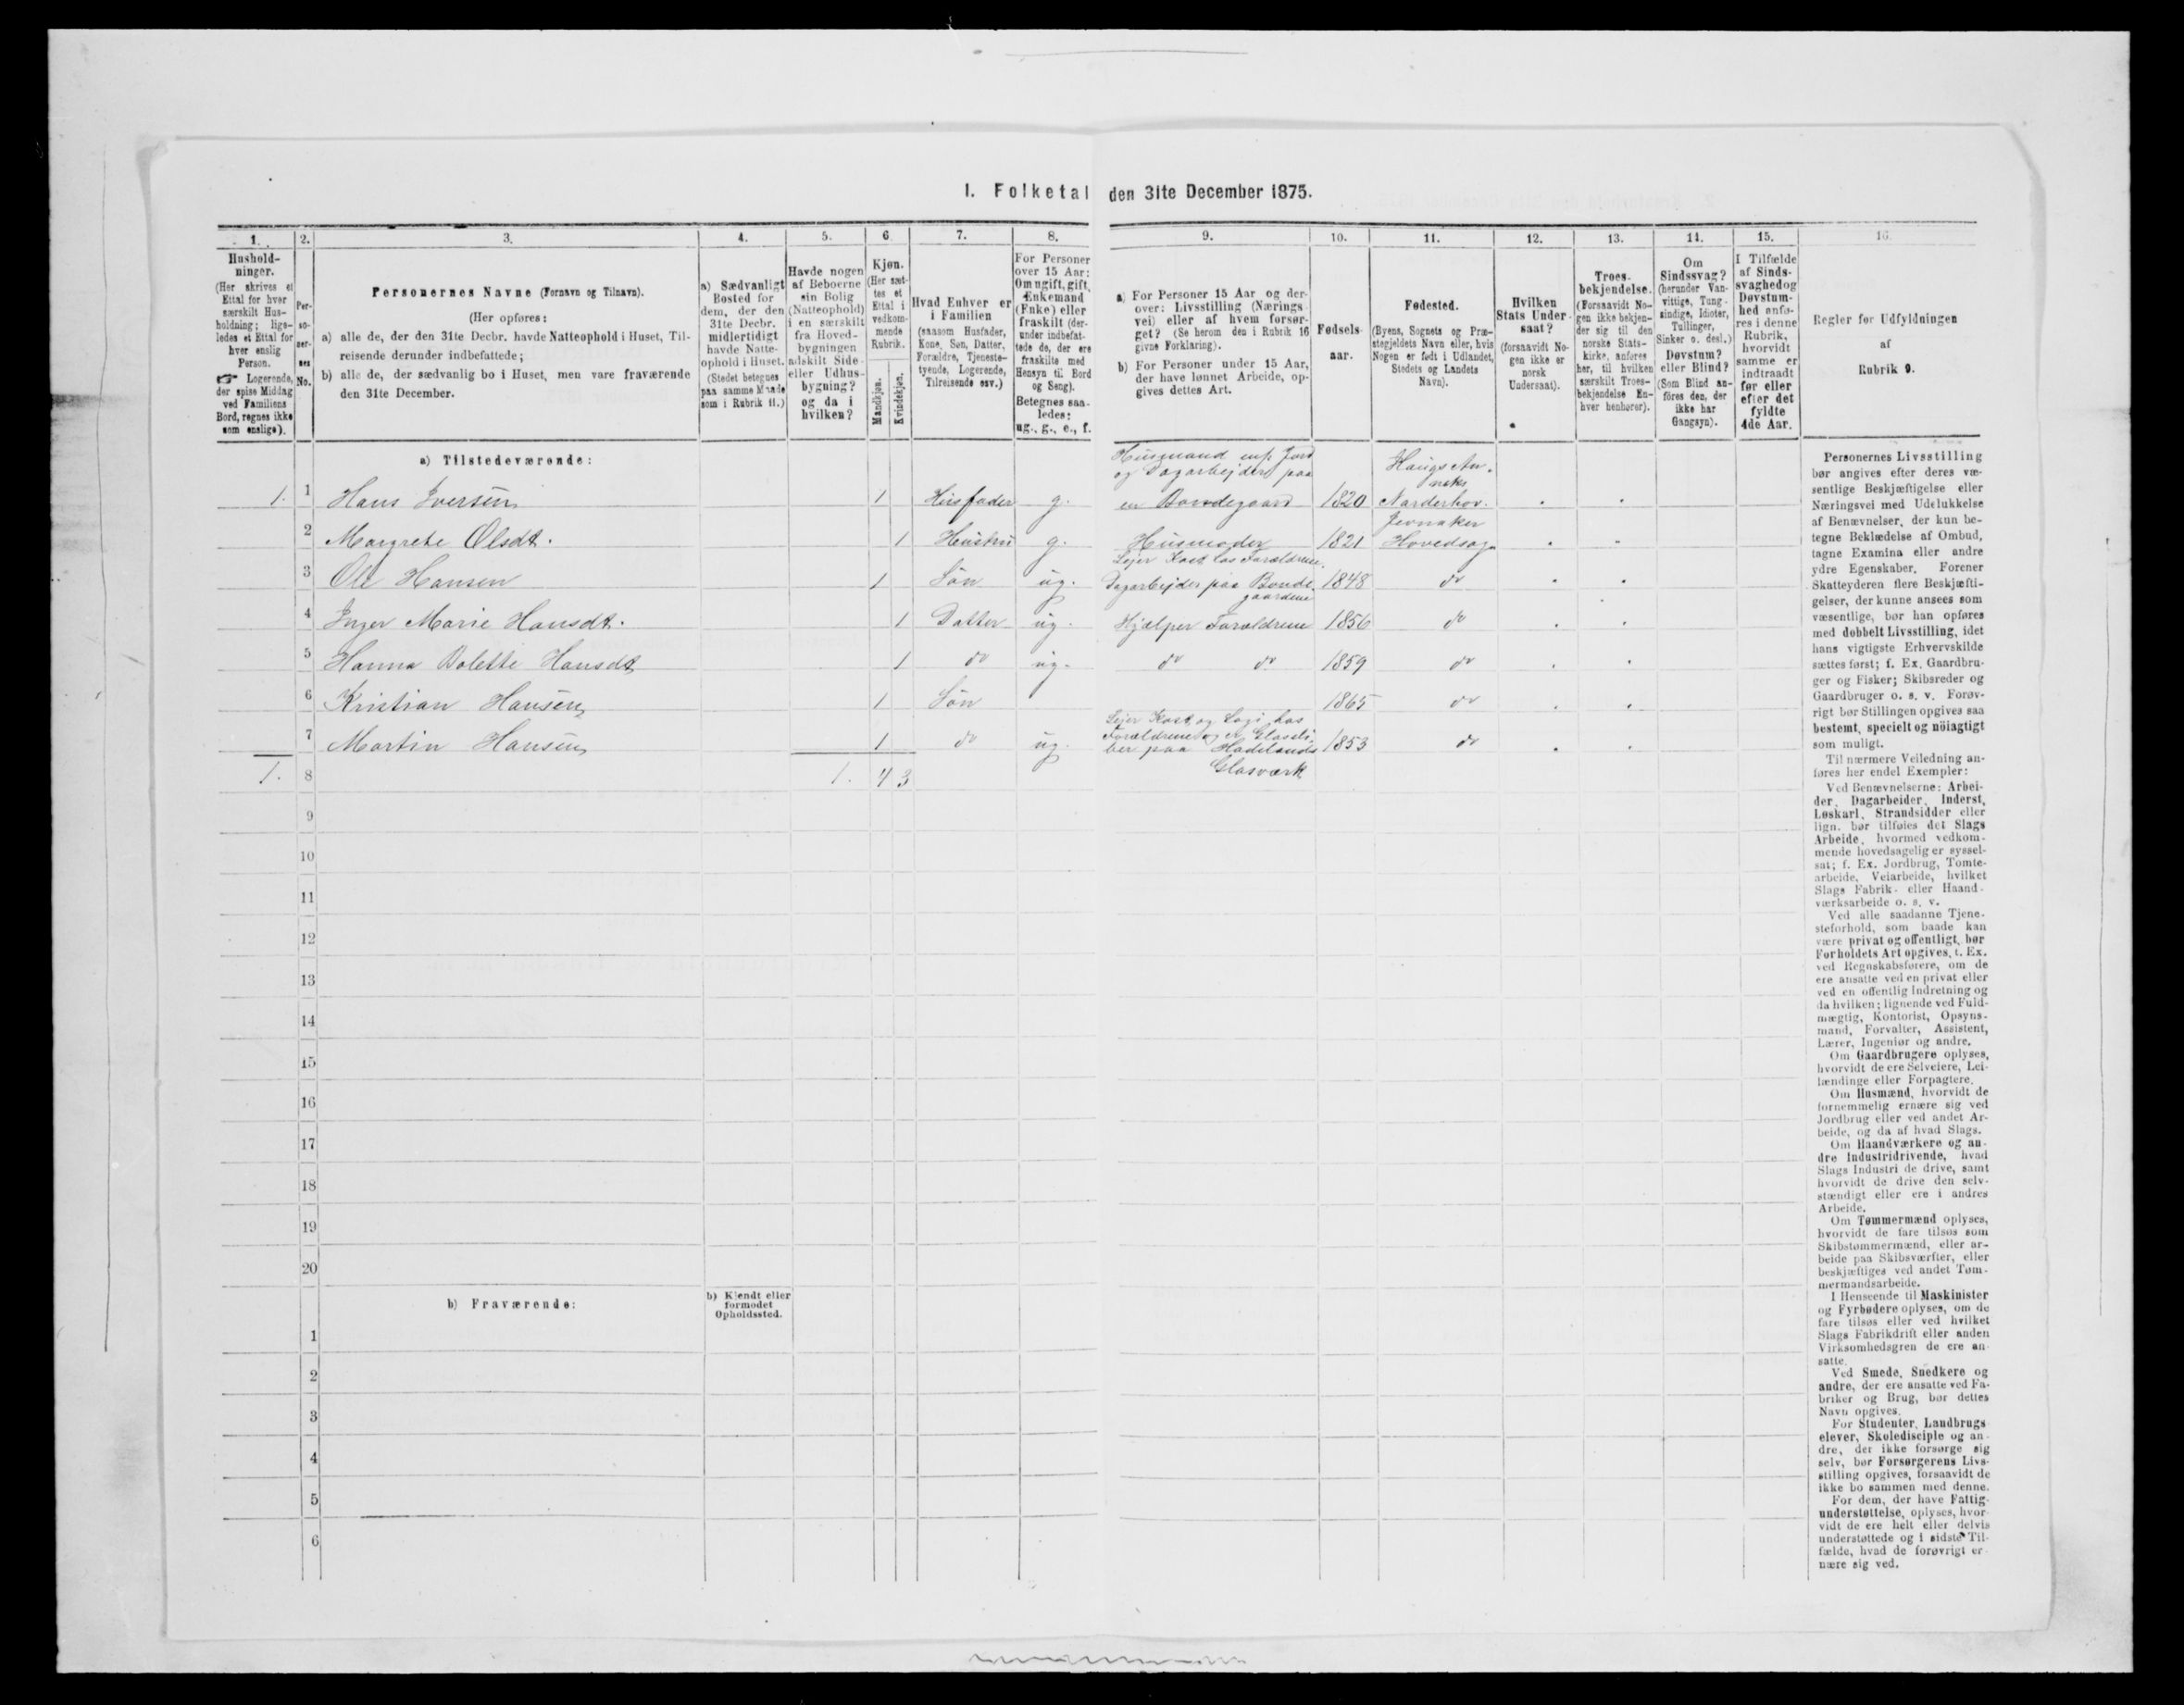 1. Folketal den 31te December 1875.
1. 2. 3. 4. 5. 6. 7. 8. 9. 10. 11. 12. 13. 14. 15. 16.
Hushold-
ninger.
(Her skrives et
Ettal for hver
særskilt Hus-
holdning; lige-
ledes et Ettal for
hver enslig
Person.
☞ Logerende,
der spise Middag
ved Familiens
Bord, regnes ikke
som enslige).
Per-
so-
ner-
nes
No.
Personernes Navne (Fornavn og Tilnavn).
(Her opføres:
a) alle de, der den 31te Decbr. havde Natteophold i Huset, Til-
reisende derunder indbefattede;
b) alle de, der sædvanlig bo i Huset, men vare fraværende
den 31te December.
a) Sædvanligt
Bosted for
dem, der den
31te Decbr.
midlertidigt
havde Natte-
ophold i Huset.
(Stedet betegnes
paa samme Maade
som i Rubrik 11.)
Havde nogen
af Beboerne
sin Bolig
(Natteophold)
i en særskilt
fra Hoved-
bygningen
adskilt Side-
eller Udhus-
bygning?
og da i
hvilken?
Kjøn.
(Her sæt-
tes et
Ettal i
vedkom-
mende
Rubrik.
Mandkjøn.
Kvindekjøn.
Hvad Enhver er
i Familien
(saasom Husfader,
Kone, Søn, Datter,
Forældre, Tjeneste-
tyende, Logerende,
Tilreisende osv.)
For Personer
over 15 Aar:
Om ugift, gift,
Enkemand
(Enke) eller
fraskilt (der-
under indbefat-
tede de, der ere
fraskilte med
Hensyn til Bord
og Seng).
Betegnes saa-
ledes:
ug., g., e., f.
a) For Personer 15 Aar og der-
over: Livsstilling (Nærings-
vei) eller af hvem forsør-
get? (Se herom den i Rubrik 16
givne Forklaring).
b) For Personer under 15 Aar,
der have lønnet Arbeide, op-
gives dettes Art.
Fødsels-
aar.
Fødested.
(Byens, Sognets og Præ-
stegjeldets Navn eller, hvis
Nogen er født i Udlandet,
Stedets og Landets
Navn).
Hvilken
Stats Under-
saat?
(forsaavidt No-
gen ikke er
norsk
Undersaat).
Troes-
bekjendelse.
(Forsaavidt No-
gen ikke bekjen-
der sig til den
norske Stats-
kirke, anføres
her, til hvilken
særskilt Troes-
bekjendelse En-
hver henhører).
Om
Sindssvag?
(herunder Van-
vittige, Tung-
sindige, Idioter,
Tullinger,
Sinker o. desl.)
Døvstum?
eller Blind?
(Som Blind an-
føres den, der
ikke har
Gangsyn).
I Tilfælde
af Sinds-
svaghed og
Døvstum-
hed anfø-
res i denne
Rubrik,
hvorvidt
samme er
indtraadt
før eller
efter det
fyldte
4de Aar.
Regler for Udfyldningen
af
Rubrik 9.
a) Tilstedeværende:
Husmand m/: Jord
og Dagarbejder paa
Haugs An.
neks
1. 1 Hans Iversen 1 Husfader g. en Bondegaard 1820 Narderhov.
Jevnaker
2 Margrete Olsdt. 1 Hustru g. Husmoder 1821 Hovedsog.
Lejer Kost hos Forældrene.
3 Ole Hansen 1 Søn ug. Dagarbejder paa Bonde- 1848 do
gaardene
4 Inger Marie Hansdt. 1 Datter ug. Hjælper Forældrene 1856 do
5 Hanna Bolette Hansdt 1 do ug. do do 1859 do
6 Kristian Hansen 1 Søn 1865 do
Lejer Kost og Logi hos
Forældrene og er Glassli-
7 Martin Hansen 1 do ug. ber paa Hadelands 1853 do
Glasværk
1. 8 1. 4 3
9
10
11
12
13
14
15
16
17
18
19
20
b) Fraværende:
b) Kjendt eller
formodet
Opholdssted.
1
2
3
4
5
6
Personernes Livsstilling
bør angives efter deres væ-
sentlige Beskjæftigelse eller
Næringsvei med Udelukkelse
af Benævnelser, der kun be-
tegne Beklædelse af Ombud,
tagne Examina eller andre
ydre Egenskaber. Forener
Skatteyderen flere Beskjæfti-
gelser, der kunne ansees som
væsentlige, bør han opføres
med dobbelt Livsstilling, idet
hans vigtigste Erhvervskilde
sættes først; f. Ex. Gaardbru-
ger og Fisker; Skibsreder og
Gaardbruger o. s. v. Forøv-
rigt bør Stillingen opgives saa
bestemt, specielt og nöiagtigt
som muligt.
Til nærmere Veiledning an-
føres her endel Exempler:
Ved Benævnelserne: Arbei-
der, Dagarbeider, Inderst,
Løskarl, Strandsidder eller
lign. bør tilføies det Slags
Arbeide, hvormed vedkom-
mende hovedsagelig er syssel-
sat; f. Ex. Jordbrug, Tomte-
arbeide, Veiarbeide, hvilket
Slags Fabrik- eller Haand-
værksarbeide o. s. v.
Ved alle saadanne Tjene-
steforhold, som baade kan
være privat og offentligt, bør
Forholdets Art opgives, t. Ex.
ved Regnskabsførere, om de
ere ansatte ved en privat eller
ved en offentlig Indretning og
da hvilken; lignende ved Fuld-
mægtig, Kontorist, Opsyns-
mand, Forvalter, Assistent,
Lærer, Ingeniør og andre.
Om Gaardbrugere oplyses,
hvorvidt de ere Selveiere, Lei-
lændinge eller Forpagtere.
Om Husmænd, hvorvidt de
fornemmelig ernære sig ved
Jordbrug eller ved andet Ar-
beide, og da af hvad Slags.
Om Haandværkere og an-
dre Industridrivende, hvad
Slags Industri de drive, samt
hvorvidt de drive den selv-
stændigt eller ere i andres
Arbeide.
Om Tømmermænd oplyses,
hvorvidt de fare tilsøs som
Skibstømmermænd, eller ar-
beide paa Skibsværfter, eller
beskjæftiges ved andet Tøm-
mermandsarbeide.
I Henseende til Maskinister
og Fyrbødere oplyses, om de
fare tilsøs eller ved hvilket
Slags Fabrikdrift eller anden
Virksomhedsgren de ere an-
satte.
Ved Smede, Snedkere og
andre, der ere ansatte ved Fa-
briker og Brug, bør dettes
Navn opgives.
For Studenter, Landbrugs-
elever, Skoledisciple og an-
dre, der ikke forsørge sig
selv, bør Forsørgerens Livs-
stilling opgives, forsaavidt de
ikke bo sammen med denne.
For dem, der have Fattig-
understøttelse, oplyses, hvor-
vidt de ere helt eller delvis
understøttede og i sidste Til-
fælde, hvad de forøvrigt er-
nære sig ved.